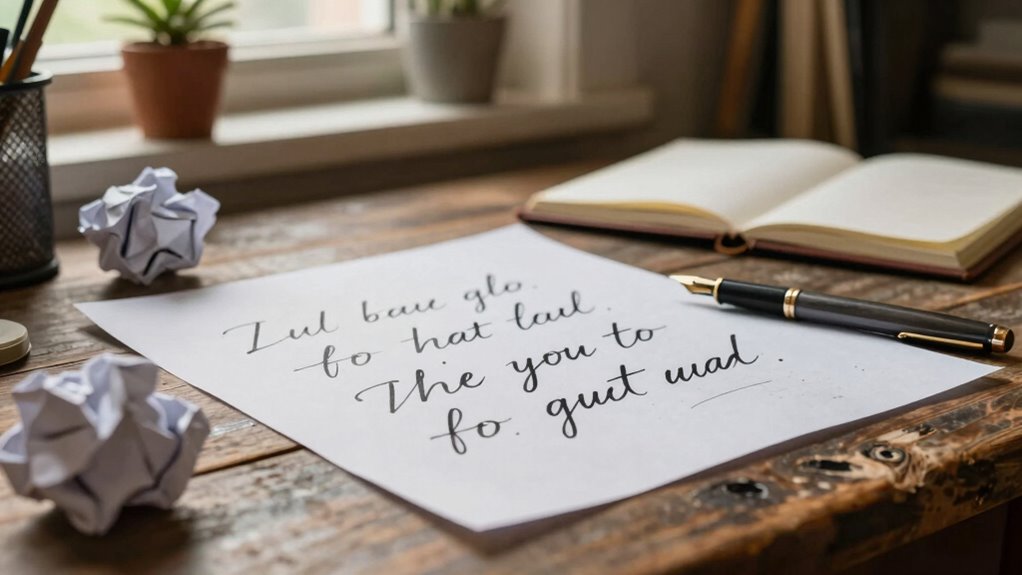 Iul baue glo.
fo hat laul.
The you to
fo. gut wad.